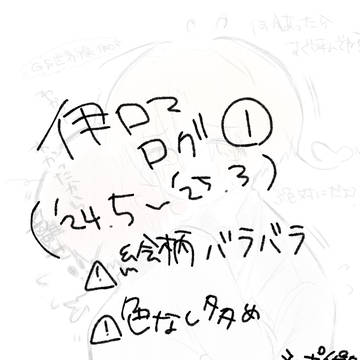 伊ロマ
ログ①
('24.5〜'25.3)
⚠絵柄バラバラ
⚠色なし多め